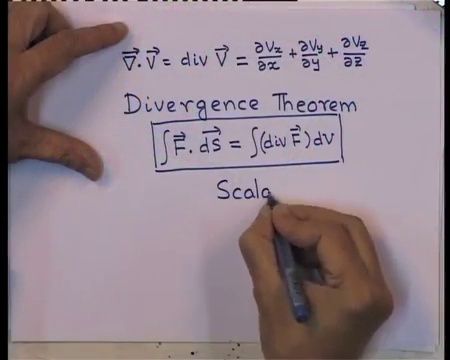 ∇⃗.V⃗ = div V⃗ = ∂Vz/∂x + ∂Vy/∂y + ∂Vz/∂z
Divergence Theorem
∫F⃗.dS⃗ = ∫(div F⃗)dV
Scala